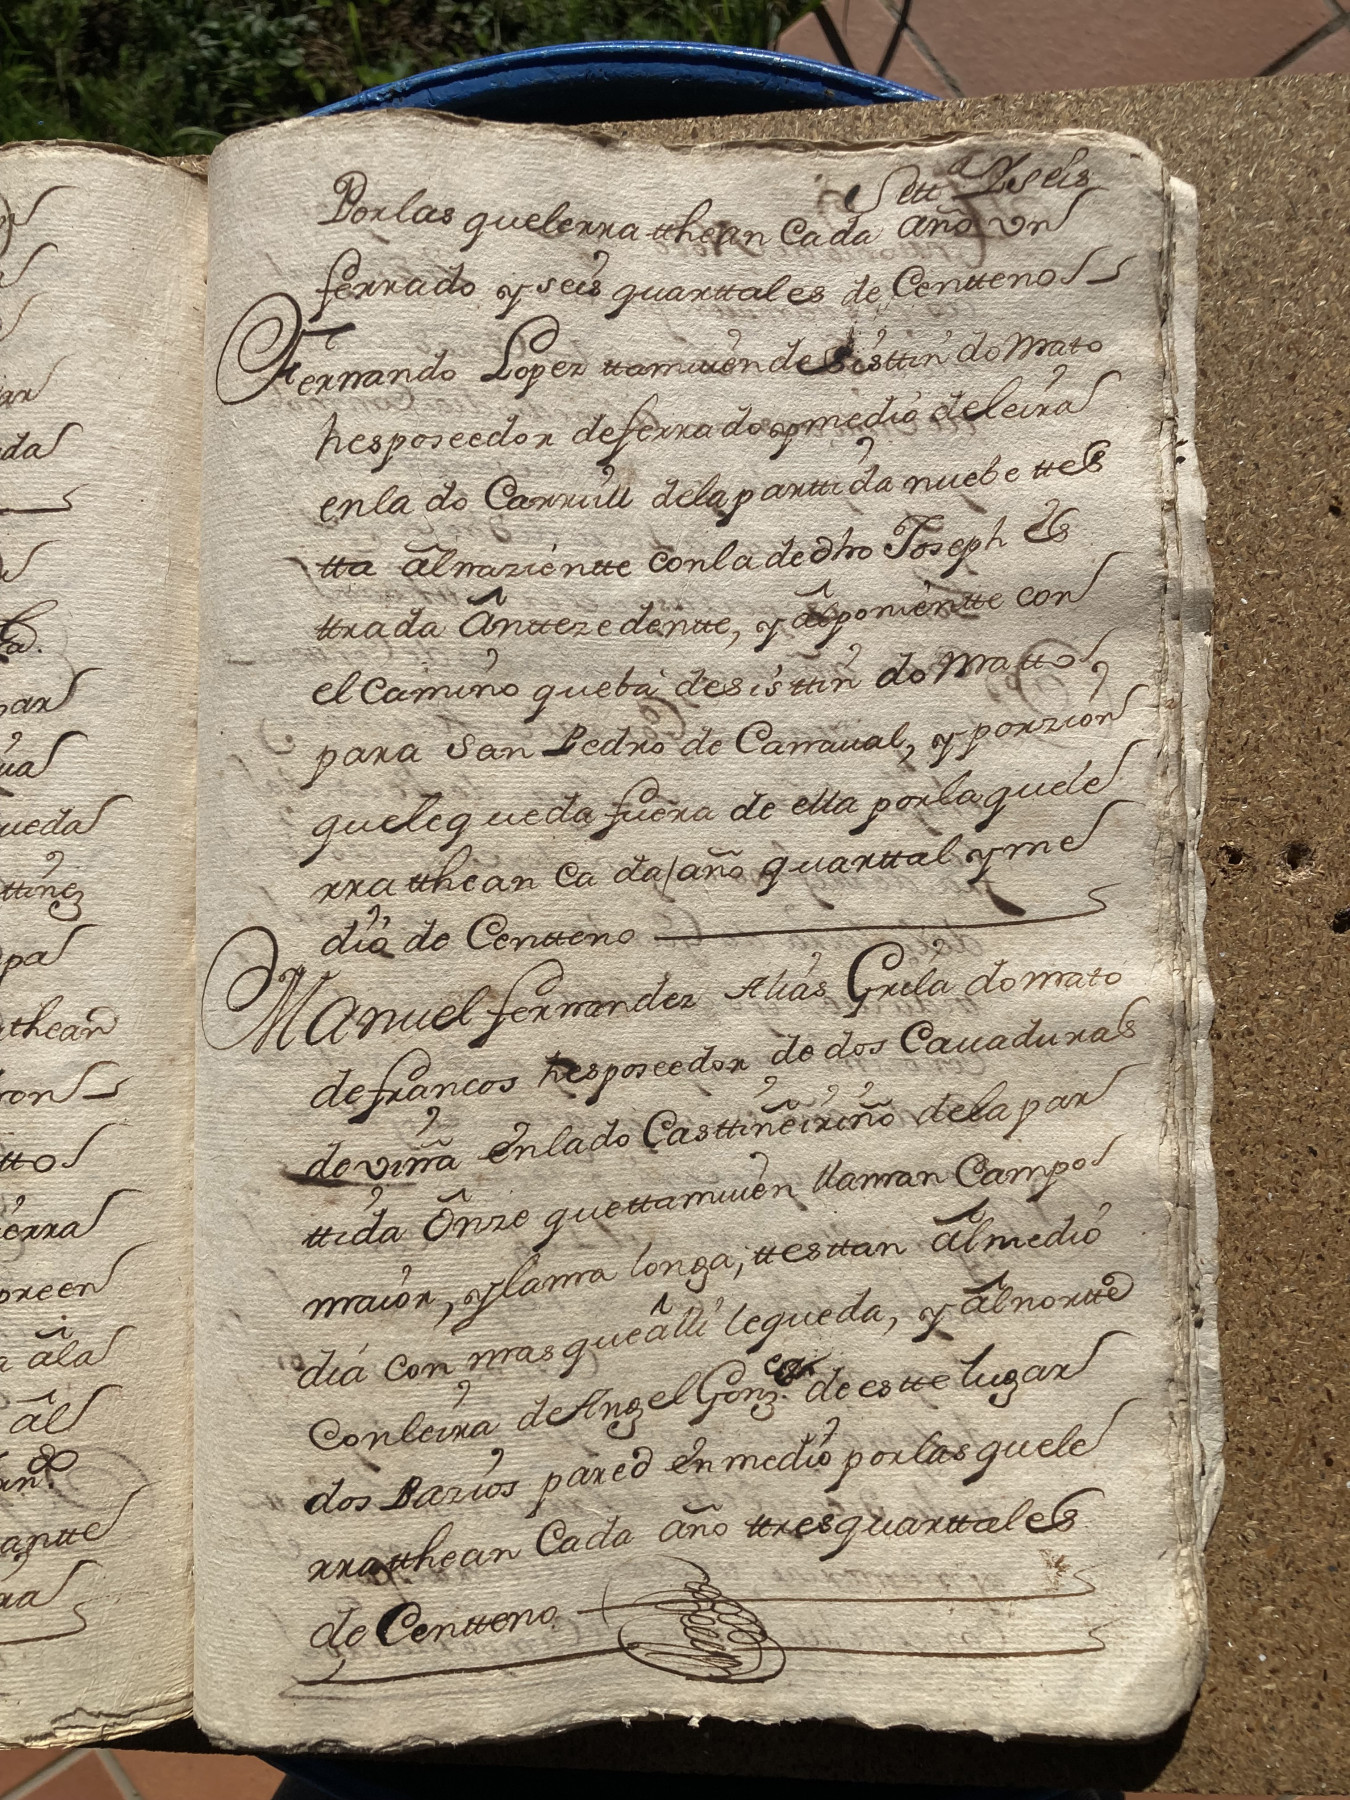 Sett.ª Yseis
Porlas quelerra tthean Cada año vn
ferrado y seis quarttales de Centteno
Fernando Lopez ttamuien de Sisttin do Mato
hesposeedor deferrado ymedio deleira
enla do Carruill delaparttida nuebe ttes
tta alnazientte conla dedho Joseph Es
ttrada Anttezedentte, y alponientte con
el Camino queba desisttin do Matto
para San Pedro de Carraual, y porzion
quelequeda fuera de ella porlaquele
rra tthean Cada año quarttal yme
dio de Centteno
Manuel fernandez Alias Grela domato
defrancos hesposeedor de dos Cauaduras
deviña enlado Casttiñeiriño delapar
ttida Onze quettamuien llaman Campo
maior, ylama longa, ttesttan almedio
dia con mas quealli lequeda, y alnortte
conleira deAngel Gonz.ez deestte lugar
dos Pazios pared enmedio porlasquele
rratthean Cada año ttresquarttales
de Centteno
ar
da
par
ua
ueda
ttinez
pa
tthean
ron
tto
erra
oreen
a ala
al
antte
ra